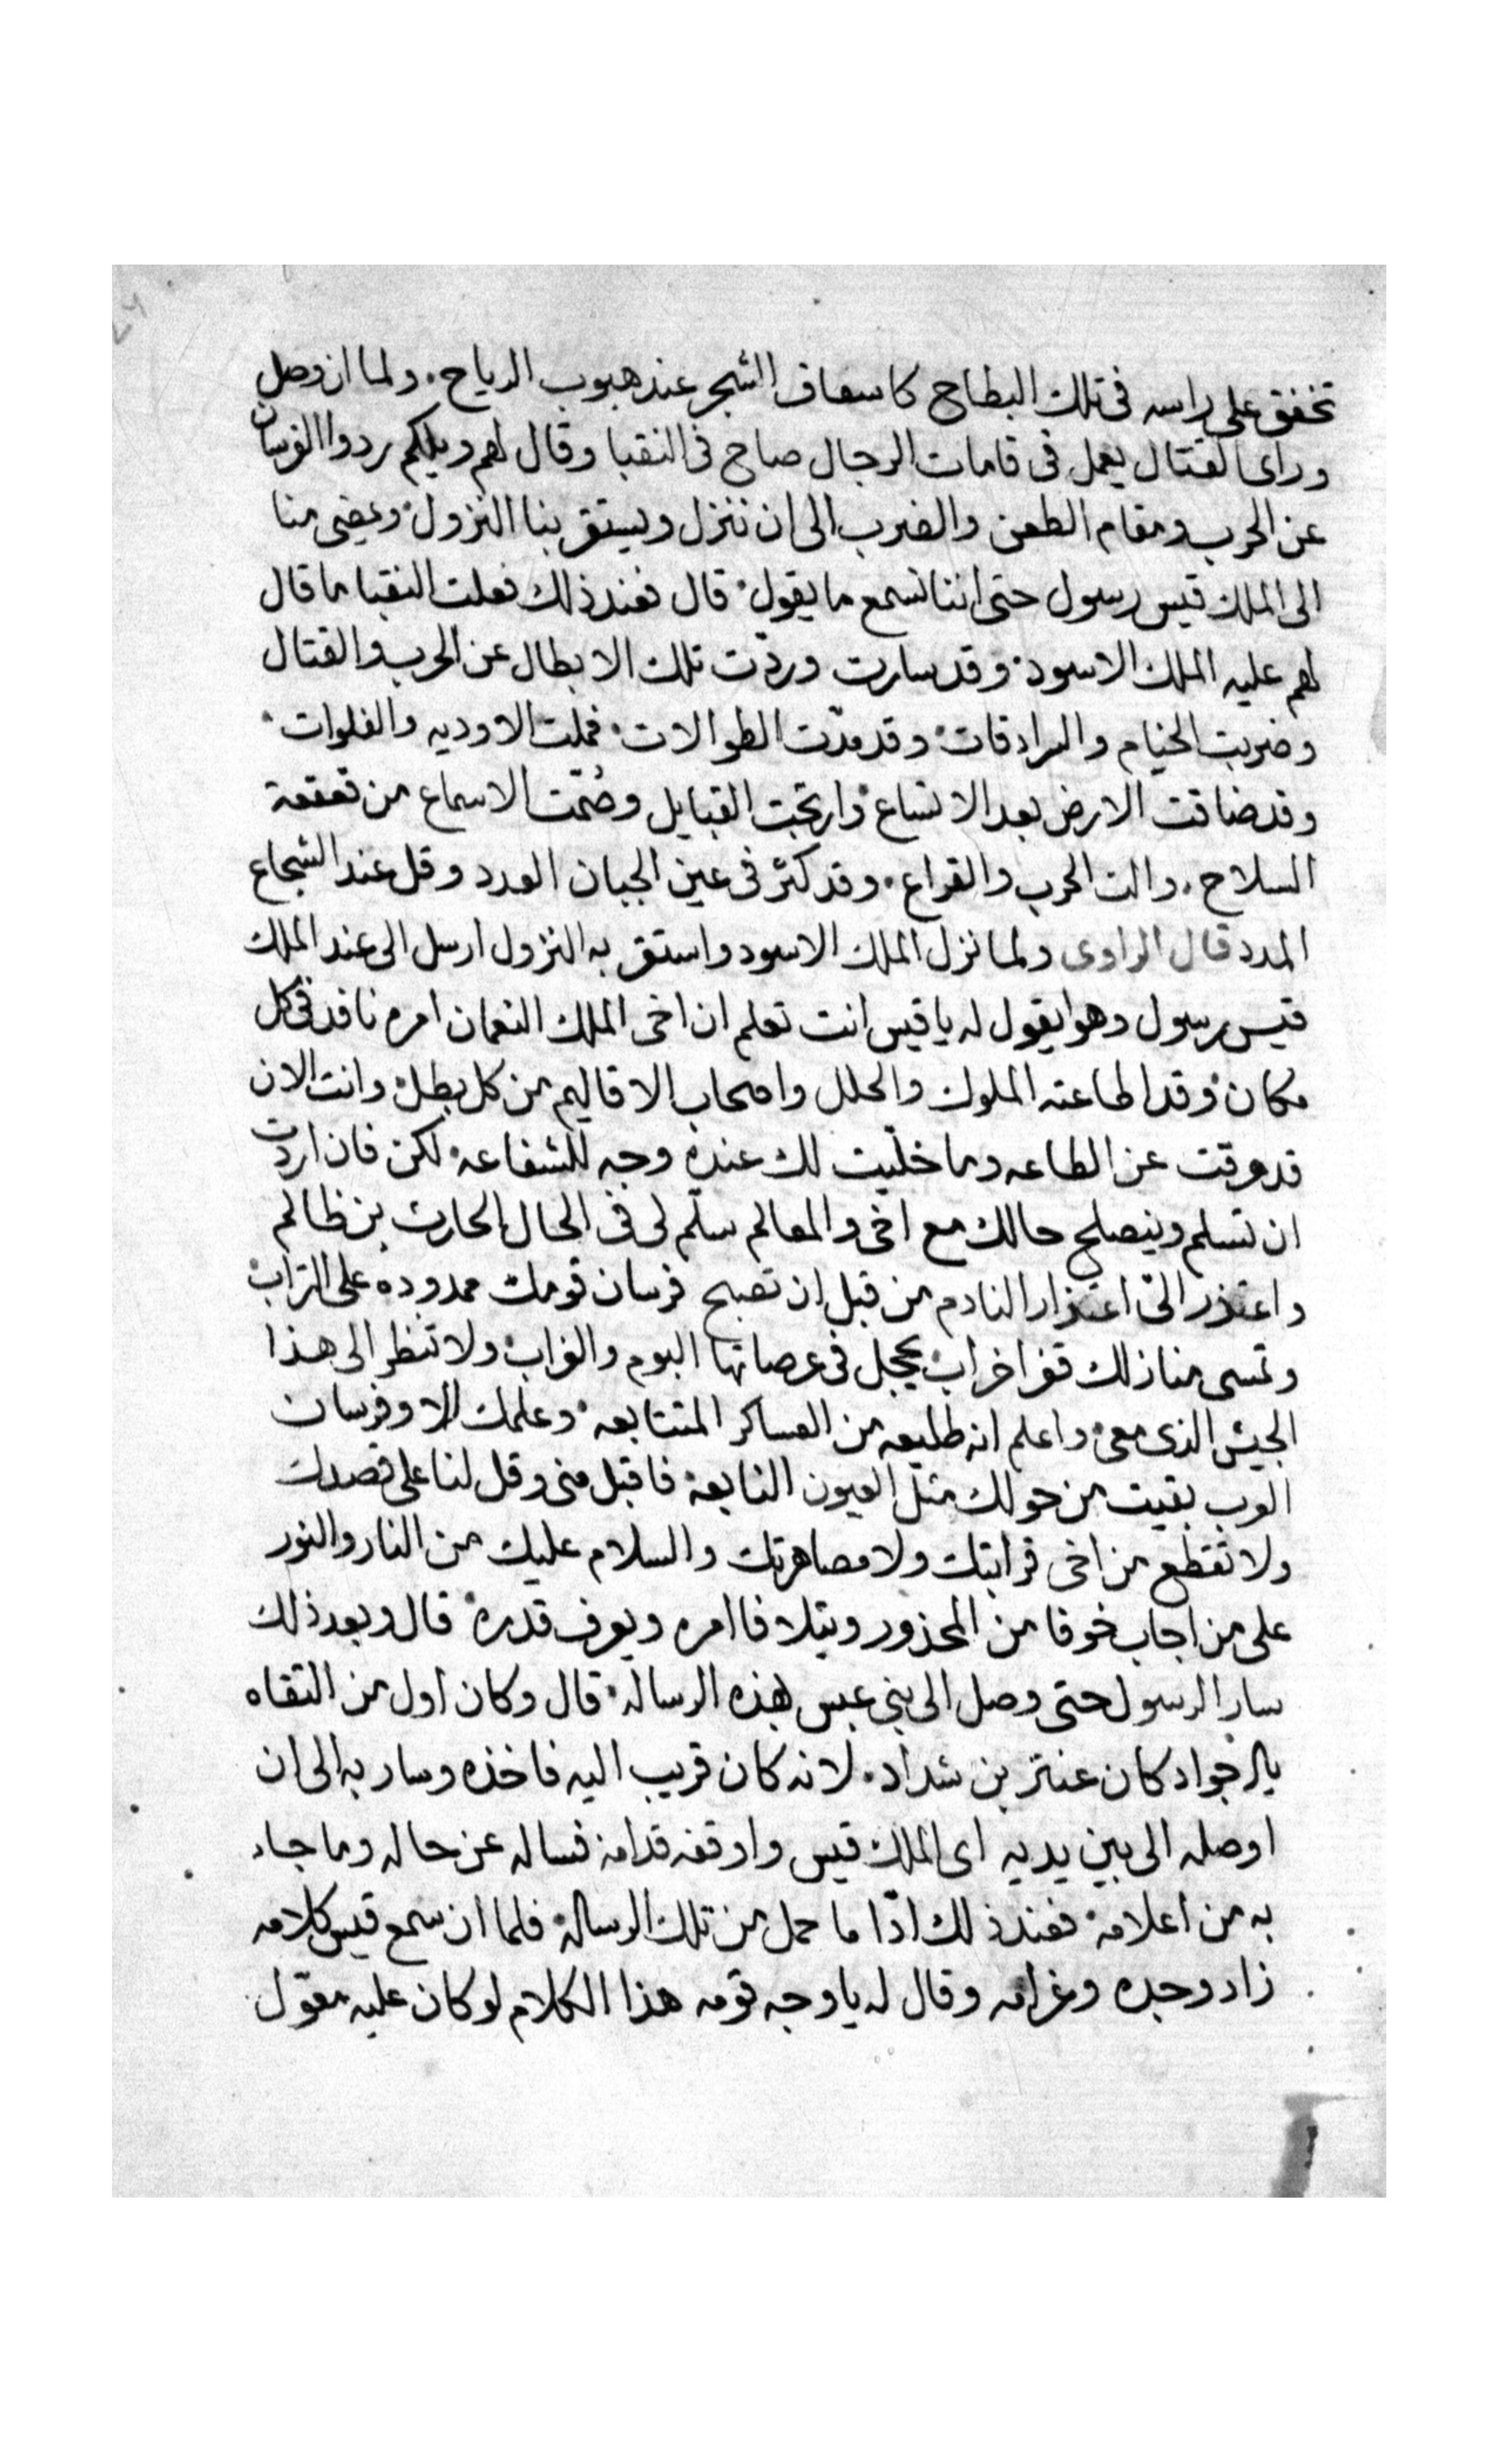 تخفق على راسه فى تلك البطاح كاسعاف الشجر عند هبوب الرياح. ولما ان وصل
وراى القتال يعمل فى قامات الرجال صاح فى النقبا وقال لهم ويلكم ردوا الفرسان
عن الحرب ومقام الطعن والضرب الى ان ننزل ويستقر بنا النزول. ويمضى منا
الى الملك قيس رسول حتى اننا نسمع ما يقول. قال فعند ذلك فعلت النقبا ما قال
لهم عليه الملك الاسود. وقد سارت وردّت تلك الابطال عن الحرب والقتال
وضربت الخيام والسرادقات. وقد مدّت الطوالات. فملت الاوديه والفلوات.
وقد ضاقت الارض بعد الاتساع. وارتجت القبايل وصُمّت الاسماع من قعقعة
السلاح. والت الحرب والقراع. وقد كثر فى عين الجبان العدد وقل عند الشجاع
المدد قال الراوى ولما نزل الملك الاسود واستقر به النزول ارسل الى عند الملك
قيس رسول وهو ايقول له يا قيس انت تعلم ان اخى الملك النعمان امره نافد فى كل
مكان. وقد اطاعته الملوك والحلل واصحاب الاقاليم من كل بطل. وانت الان
قد مرقت عن الطاعه وما خلّيت لك عنده وجه للشفاعه. لكن فان اردت
ان تسلم وينصلح حالك مع اخى والمعالم سلّم لى فى الحال الحارث بن ظالم
واعتذر الىّ اعتذار النادم من قبل ان تصبح فرسان قومك ممدوده على التراب.
وتمسى منازلك قفرا خراب. يحجل فى عرصاتها البوم والغراب. ولا تنظر الى هذا
الجيش الذى معى. واعلم انه طليعه من العساكر المتتابعه. وعلمك الا وفرسان
العرب بقيت من حولك مثل العيون النابعه. فاقبل منى وقل لنا على قصدك
ولا تقطع من اخى قرابتك ولا مصاهرتك والسلام عليك من النار والنور
على من اجاب خوفا من المحذور ويتلافا امره ويعرف قدره. قال وبعد ذلك
سار الرسول حتى وصل الى بنى عبس بهذه الرساله. قال وكان اول من التقاه
كان عنتر بن شداد. لانه كان قريب اليه فاخذه وسار به الى ان
اوصله الى بين يديه اى الملك قيس واوقفه قدامه فساله عن حاله وما جاء
به من اعلامه. فعند ذلك ادّا ما حمل من تلك الرساله. فلما ان سمع قيس كلامه
زاد وجده وغرامه وقال له يا وجه قومه هذا الكلام لو كان عليه معوّل